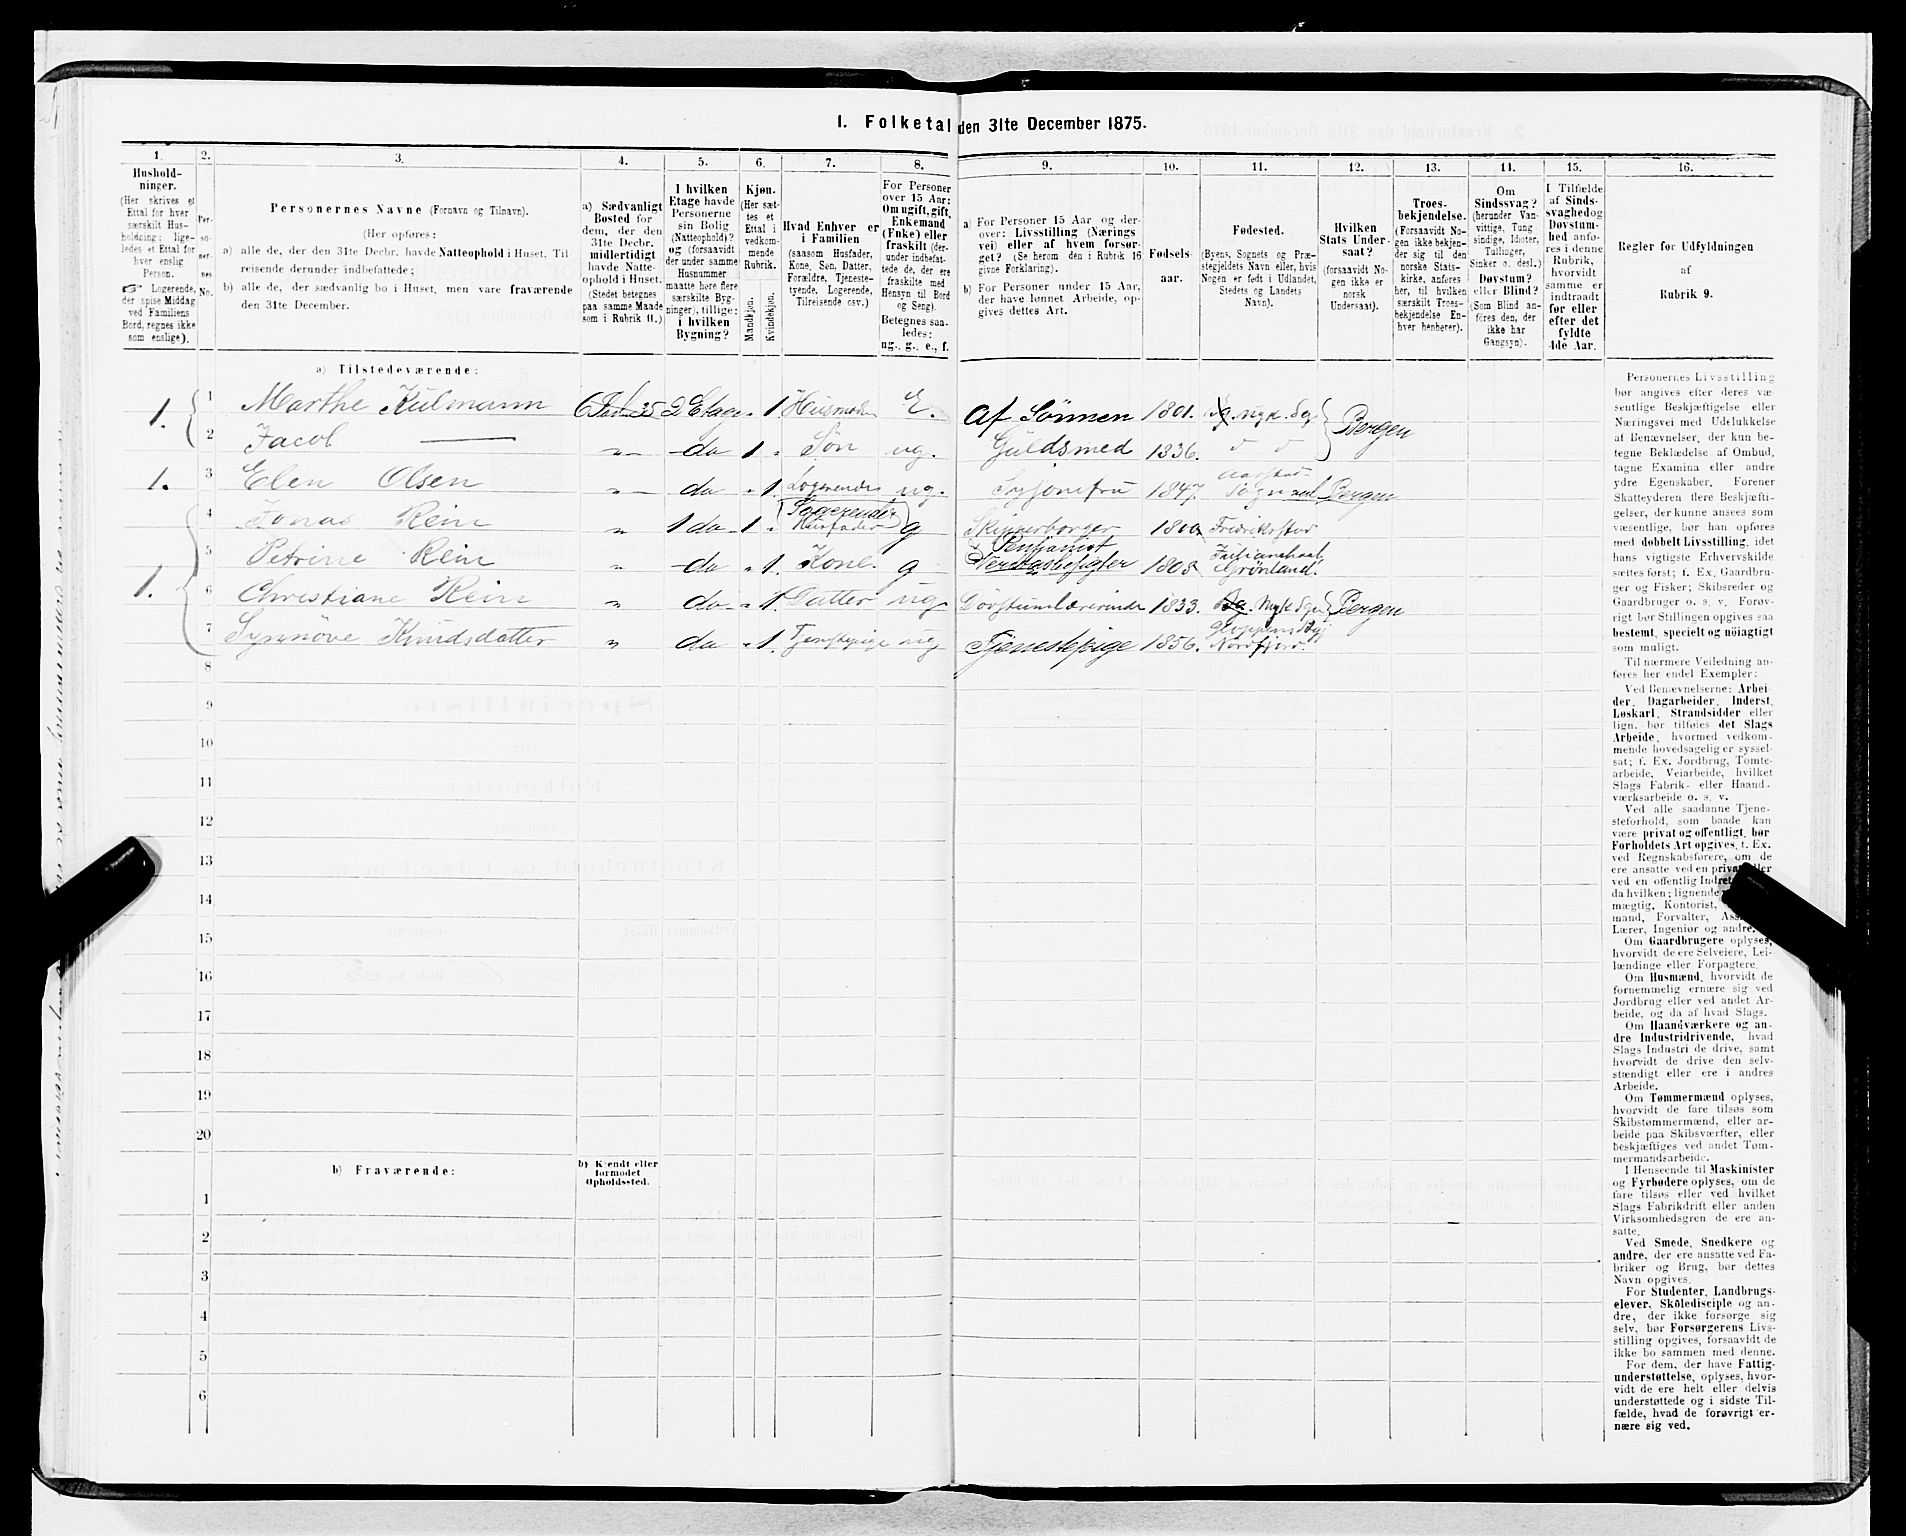 1. Folketal den 31te December 1875.
1.
Hushold-
ninger.
(Her skrives et
Ettal for hver
særskilt Hus-
holdning; lige-
ledes et Ettal for
hver enslig
Person.
☞ Logerende,
der spise Middag
ved Familiens
Bord, regnes ikke
som enslige).
2.
Per-
so-
ner-
nes
No.
3.
Personernes Navne (Fornavn og Tilnavn).
(Her opføres:
a) alle de, der den 31te Decbr. havde Natteophold i Huset, Til-
reisende derunder indbefattede;
b) alle de, der sædvanlig bo i Huset, men vare fraværende
den 31te December.
4.
a) Sædvanligt
Bosted for
dem, der den
31te Decbr.
midlertidigt
havde Natte-
ophold i Huset.
(Stedet betegnes
paa samme Maade
som i Rubrik 11.)
5.
I hvilken
Etage havde
Personerne
sin Bolig
(Natteophold)?
og (forsaavidt
der under samme
Husnummer
maatte høre flere
særskilte Byg-
ninger), tillige:
i hvilken
Bygning?
6.
Kjøn.
(Her sæt-
tes et
Ettal i
vedkom-
mende
Rubrik.
Mandkjøn.
Kvindekjøn.
7.
Hvad Enhver er
i Familien
(saasom Husfader,
Kone, Søn, Datter,
Forældre, Tjeneste-
tyende, Logerende,
Tilreisende osv.)
8.
For Personer
over 15 Aar:
Om ugift, gift,
Enkemand
(Enke) eller
fraskilt (der-
under indbefat-
tede de, der ere
fraskilte med
Hensyn til Bord
og Seng).
Betegnes saa-
ledes:
ug., g., e., f.
9.
a) For Personer 15 Aar og der-
over: Livsstilling (Nærings
vei) eller af hvem forsør-
get? (Se herom den i Rubrik 16
givne Forklaring).
b) For Personer under 15 Aar,
der have lønnet Arbeide, op-
gives dettes Art.
10.
Fødsels-
aar.
11.
Fødested.
(Byens, Sognets og Præ-
stegjeldets Navn eller, hvis
Nogen er født i Udlandet,
Stedets og Landets
Navn).
12.
Hvilken
Stats Under-
saat?
(forsaavidt No-
gen ikke er
norsk
Undersaat).
13.
Troes-
bekjendelse.
(Forsaavidt No-
gen ikke bekjen-
der sig til den
norske Stats-
kirke, anføres
her, til hvilken
særskilt Troes-
bekjendelse En-
hver henhører).
14.
Om
Sindssvag?
(herunder Van-
vittige, Tung
sindige, Idioter,
Tullinger,
Sinker o. desl.)
Døvstum?
eller Blind?
(Som Blind an-
føres den, der
ikke har
Gangsyn).
15.
I Tilfælde
af Sinds-
svaghed og
Døvstum-
hed anfø-
res i denne
Rubrik,
hvorvidt
samme er
indtraadt
før eller
efter det
fyldte
4de Aar.
16.
Regler for Udfyldningen
af
Rubrik 9.
a) Tilstedeværende:
1. 1 Marthe Kulmann 2 Etage 1 E. Af Sønnen 1801. Bergen
2 Jacob — da 1 Søn ug. Guldsmed 1836.
1. 3 Elen Olsen da 1. Logerende ug. 1847. Bergen
4 Jonas Rein 1 da 1 Husfader g Skipperborger
5 Petrine Rein da 1. Kone g 1808 Grønland.
1. 6 Christiane Rein da 1. Datter ug Døvstumlærerinde 1833. Bergen
7 Synnøve Knudsdatter da 1. ug Tjenestepige 1856. Nordfjord.
8
9
10
11
12
13
14
15
16
17
18
19
20
b) Fraværende:
b) Kjendt eller
formodet
Opholdssted.
1
2
3
4
5
6
Personernes Livsstilling
bør angives efter deres væ-
sentlige Beskjæftigelse eller
Næringsvei med Udelukkelse
af Benævnelser, der kun be-
tegne Beklædelse af Ombud,
tagne Examina eller andre
ydre Egenskaber. Forener
Skatteyderen flere Beskjæfti-
gelser, der kunne ansees som
væsentlige, bør han opføres
med dobbelt Livsstilling, idet
hans vigtigste Erhvervskilde
sættes først; f. Ex. Gaardbru-
ger og Fisker; Skibsreder og
Gaardbruger o. s. v. Forøv-
rigt bør Stillingen opgives saa
bestemt, specielt og nöiagtigt
som muligt.
Til nærmere Veiledning an-
føres her endel Exempler:
Ved Benævnelserne: Arbei-
der, Dagarbeider, Inderst,
Løskarl, Strandsidder eller
lign. bør tilføies det Slags
Arbeide, hvormed vedkom-
mende hovedsagelig er syssel-
sat; f. Ex. Jordbrug, Tomte-
arbeide, Veiarbeide, hvilket
Slags Fabrik- eller Haand-
værksarbeide o. s. v.
Ved alle saadanne Tjene-
steforhold, som baade kan
være privat og offentligt, bør
Forholdets Art opgives, f. Ex.
ved Regnskabsførere, om de
ere ansatte ved en privat eller
ved en offentlig
da hvilken; lignende
mægtig, Kontorist,
mand, Forvalter,
Lærer, Ingeniør og andre.
Om Gaardbrugere oplyses,
hvorvidt de ere Selveiere, Lei-
lændinge eller Forpagtere.
Om Husmænd, hvorvidt de
fornemmelig ernære sig ved
Jordbrug eller ved andet Ar-
beide, og da af hvad Slags.
Om Haandværkere og an-
dre Industridrivende, hvad
Slags Industri de drive, samt
hvorvidt de drive den selv-
stændigt eller ere i andres
Arbeide.
Om Tømmermænd oplyses,
hvorvidt de fare tilsøs som
Skibstømmermænd, eller ar-
beide paa Skibsværfter, eller
beskjæftiges ved andet Tøm-
mermandsarbeide.
I Henseende til Maskinister
og Fyrbødere oplyses, om de
fare tilsøs eller ved hvilket
Slags Fabrikdrift eller anden
Virksomhedsgren de ere an-
satte.
Ved Smede, Snedkere og
andre, der ere ansatte ved Fa-
briker og Brug, bør dettes
Navn opgives.
For Studenter, Landbrugs-
elever, Skóledisciple og an-
dre, der ikke forsørge sig
selv, bør Forsørgerens Livs-
stilling opgives, forsaavidt de
ikke bo sammen med denne.
For dem, der have Fattig-
understøttelse, oplyses, hvor-
vidt de ere helt eller delvis
understøttede og i sidste Til-
fælde, hvad de forøvrigt er-
nære sig ved.